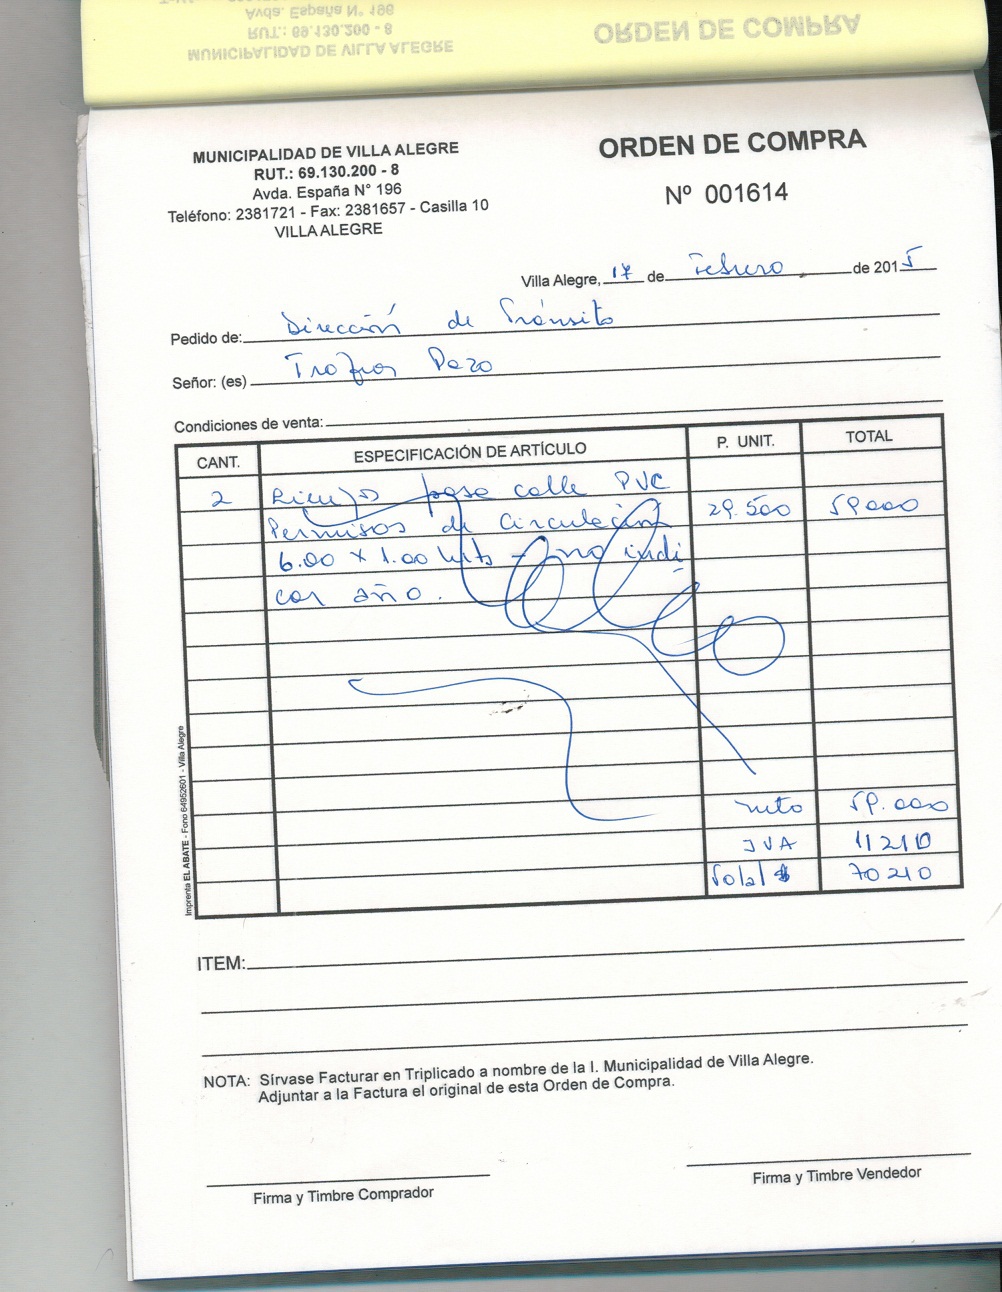 MUNICIPALIDAD DE VILLA ALEGRE
RUT.: 69.130.200 - 8
Avda. España N° 196
ORDEN DE COMPRA
MUNICIPALIDAD DE VILLA ALEGRE
RUT.: 69.130.200 - 8
Avda. España N° 196
Teléfono: 2381721 - Fax: 2381657 - Casilla 10
VILLA ALEGRE
ORDEN DE COMPRA
Nº 001614
Villa Alegre, 17 de Febrero de 2015
Pedido de: Dirección de Tránsito
Señor: (es) Trofeos Pazo
Condiciones de venta:
CANT. ESPECIFICACIÓN DE ARTÍCULO P. UNIT. TOTAL
2 Lienzos pasa calle PVC
Permisos de Circulación 29.500 59000
6.00 x 1.00 mts - no indi
car año.
neto 59.000
IVA 11210
Total $ 70210
Imprenta EL ABATE - Fono 64952601 - Villa Alegre
ITEM:
NOTA: Sírvase Facturar en Triplicado a nombre de la I. Municipalidad de Villa Alegre.
Adjuntar a la Factura el original de esta Orden de Compra.
Firma y Timbre Comprador
Firma y Timbre Vendedor